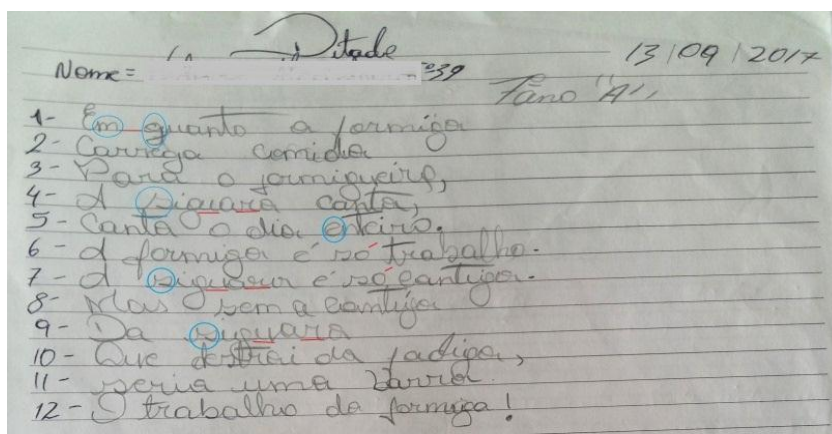 Ditado
13/09/2017
Nome= nº39
7ºano "A"
1- Em quanto a formiga
2- Carrega comida
3- Para o formigueiro,
4- A siguara canta,
5- Canta o dia enteiro.
6- A formiga é só trabalho.
7- A é só cantiga.
8- Mas sem a cantiga
9- Da siguara
10- Que destrai da fadiga,
11- seria uma barra
12- O trabalho da formiga!